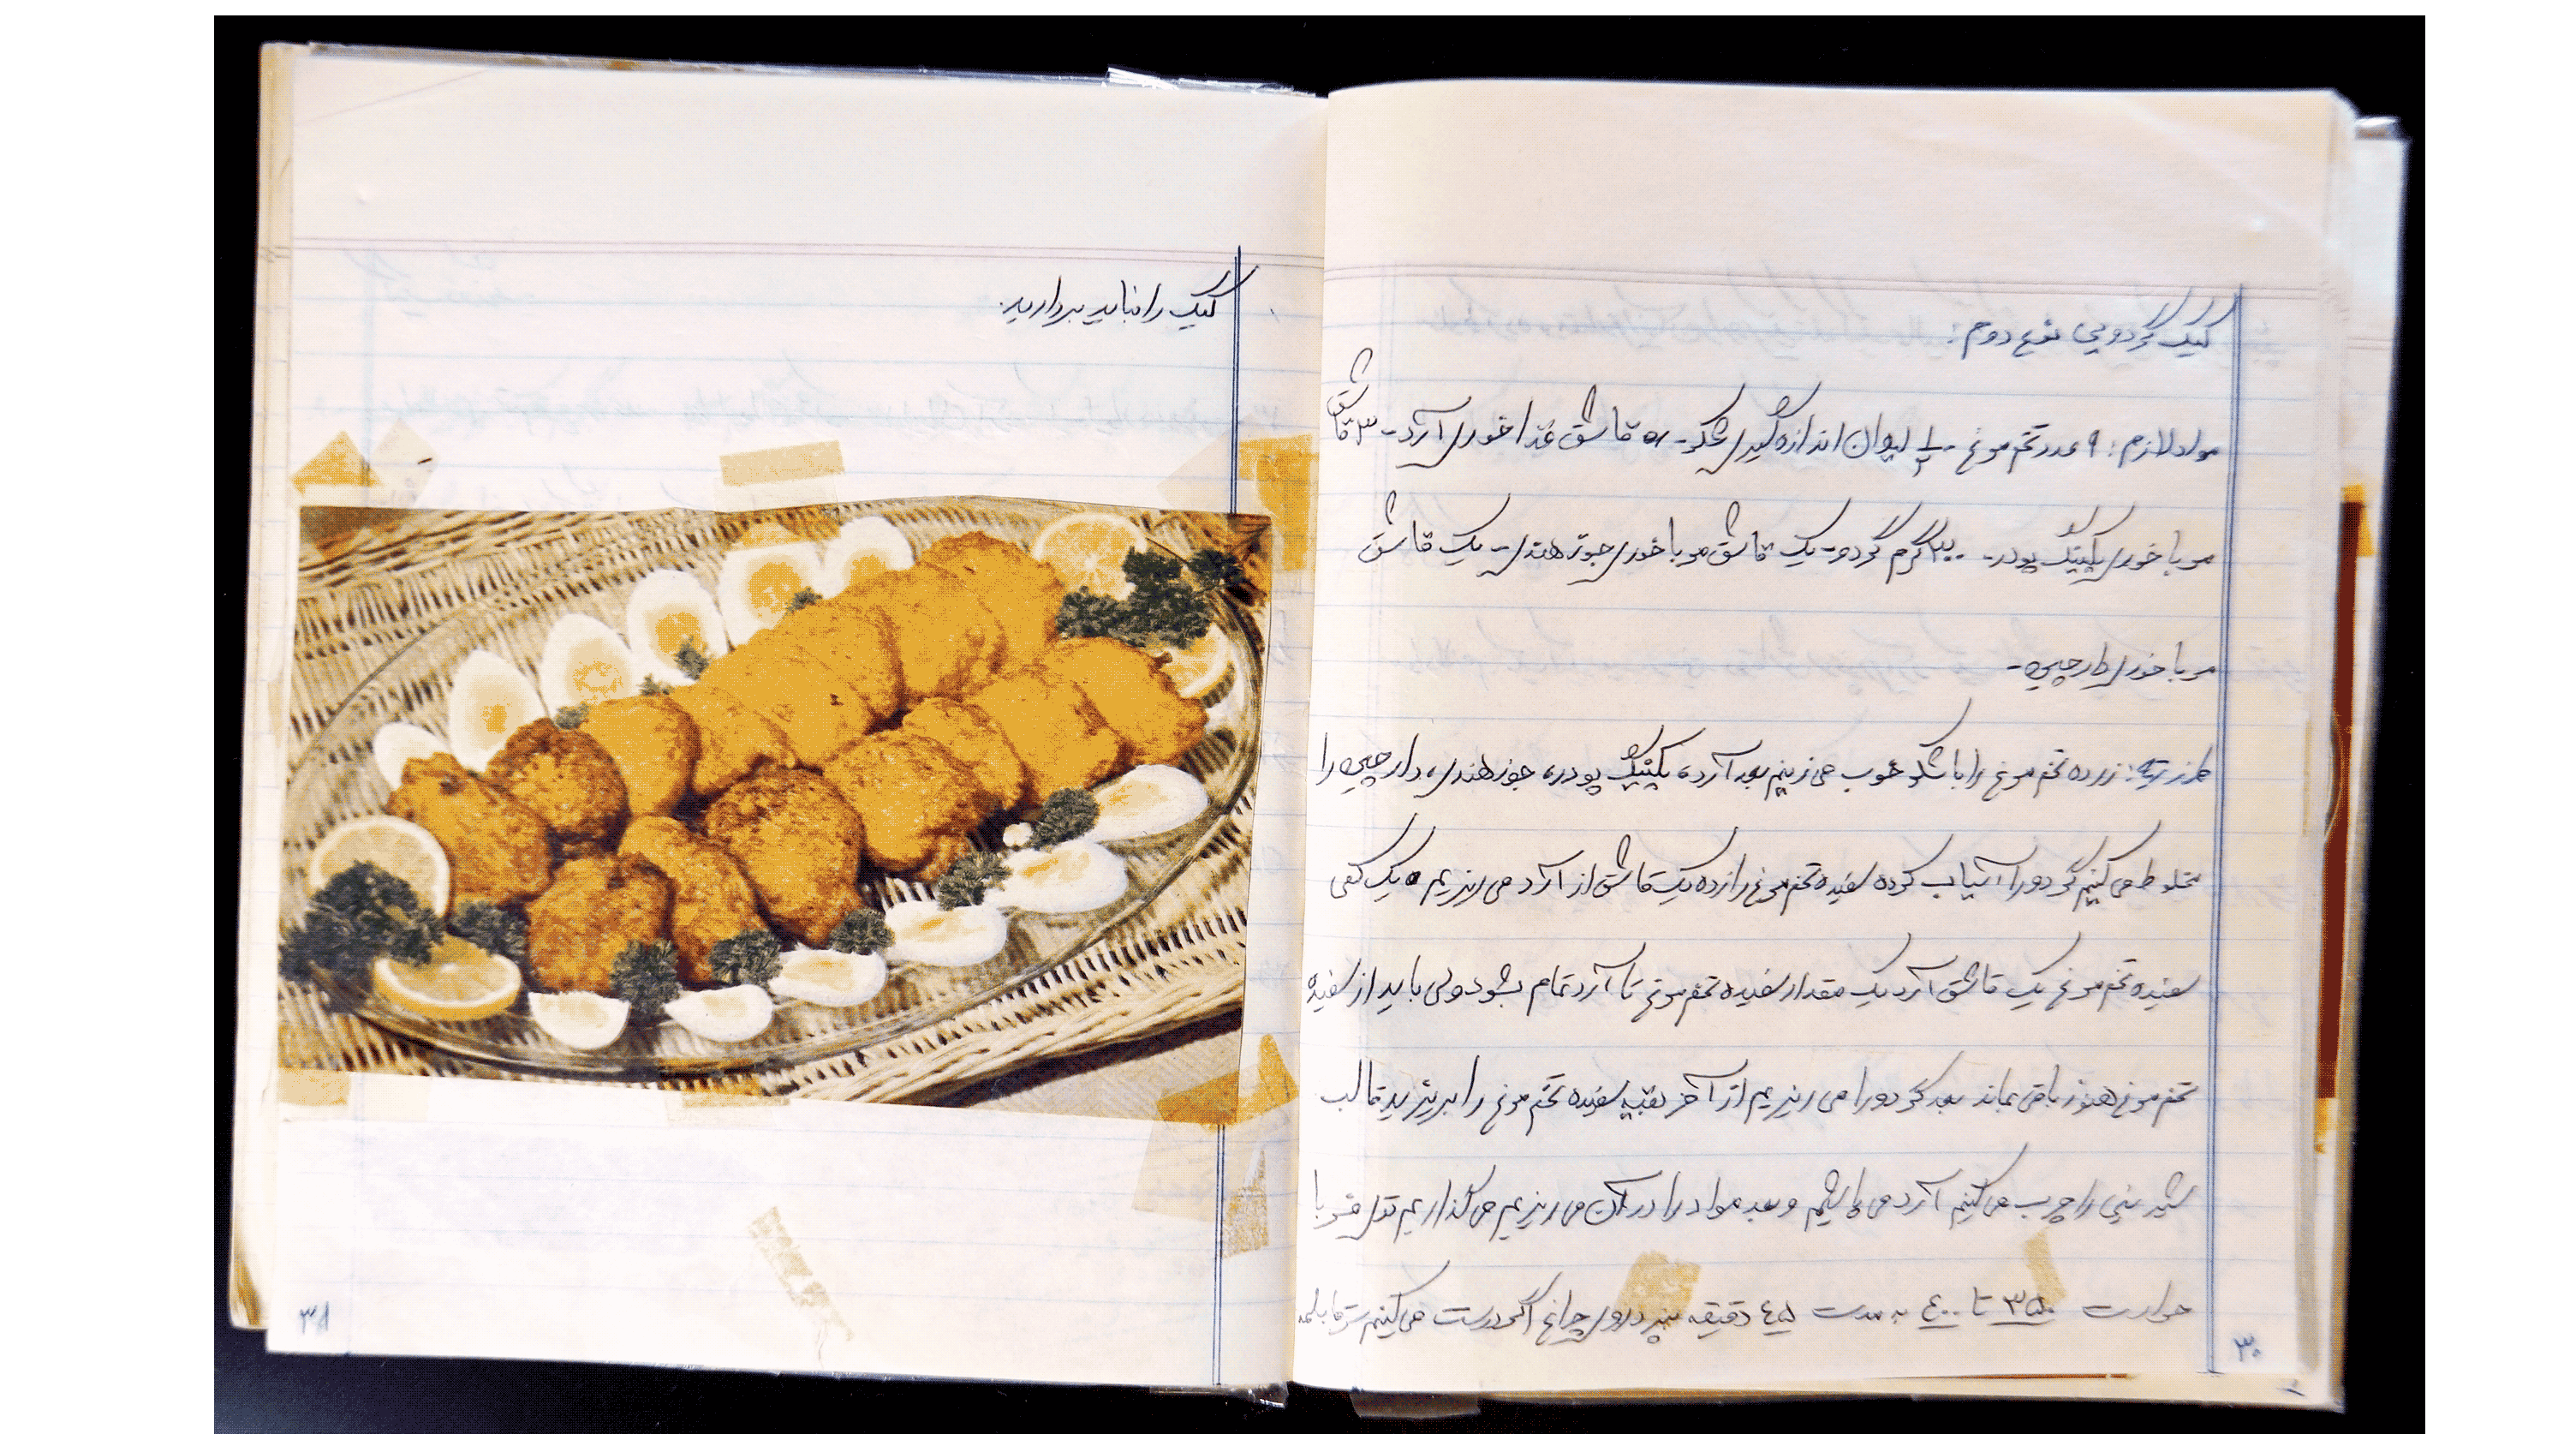 کیک گردویی نوع دوم:
مواد لازم: ۹ عدد تخم مرغ - ۱/۲ لیوان اندازه گیری شکر - ۵ قاشق غذا خوری آرد - ۳ قاشق
مربا خوری بکینگ پودر - ۲۰۰ گرم گردو - یک قاشق مربا خوری جوز هندی - یک قاشق
مربا خوری دارچین -
طرز تهیه: زرده تخم مرغ را با شکر خوب می زنیم بعد آرد، بکینگ پودر، جوز هندی، دارچین را
مخلوط می کنیم گردو را آسیاب کرده سفیده تخم مرغ را زده یک قاشق از آرد می ریزیم و یک کفی
سفیده تخم مرغ یک قاشق آرد یک مقدار سفیده تخم مرغ تا آرد تمام بشود ولی باید از سفیده
تخم مرغ هنوز باقی بماند بعد گردو را می ریزیم از آخر بقیه سفیده تخم مرغ را بریزید قالب
شیرینی را چرب می کنیم آرد می پاشیم و بعد مواد را در آن می ریزیم می گذاریم توی فر با
حرارت ۳۵۰ تا ۴۰۰ به مدت ۴۵ دقیقه بپزد روی چراغ اگر درست می کنیم سر قابلمه
۳۰
کیک را نباید بردارید.
۳۱